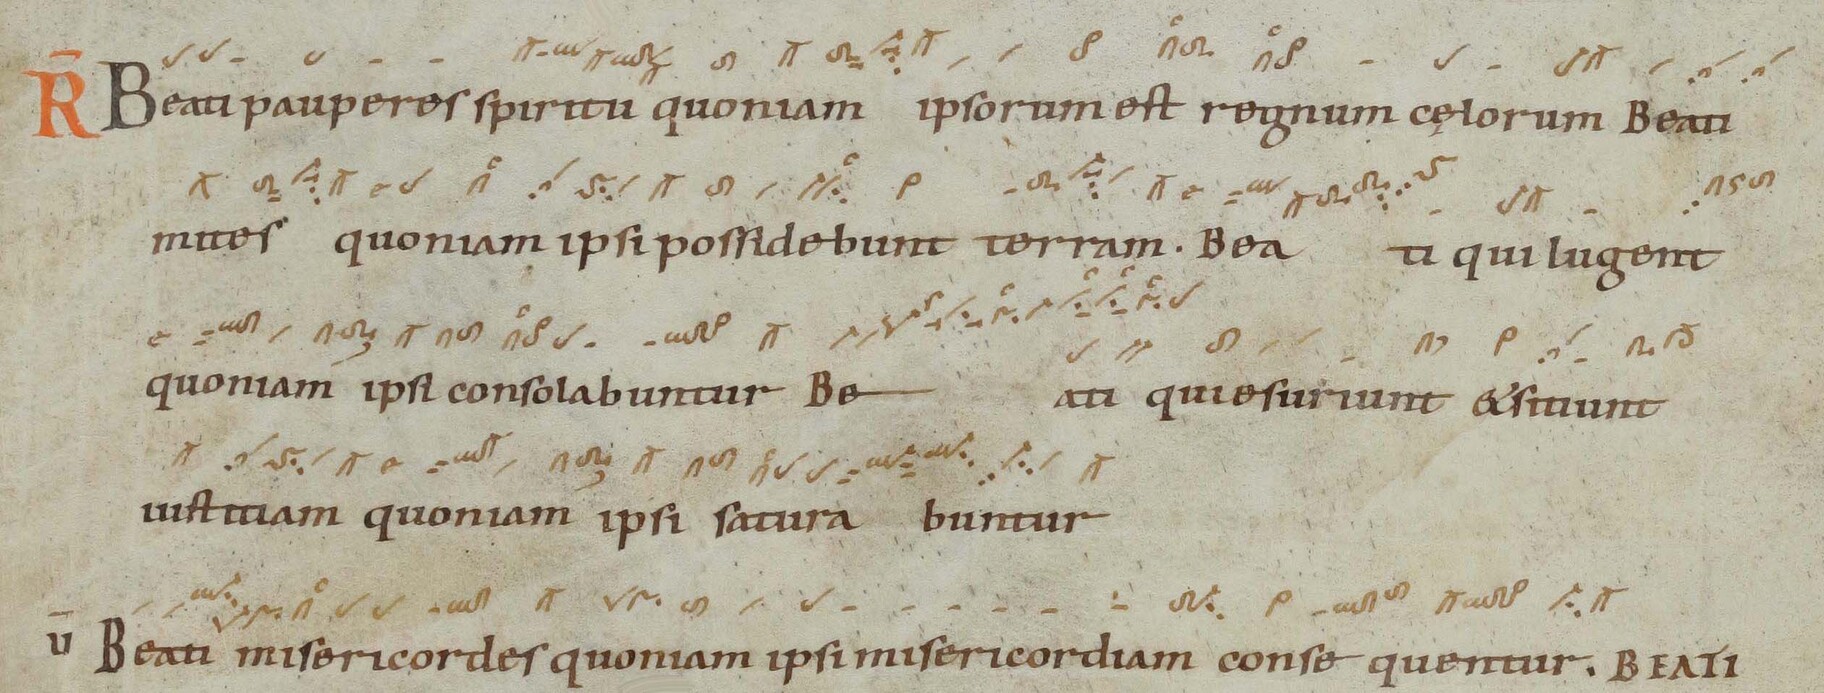 R̄ Beati pauperes spiritu quoniam ipsorum est regnum cęlorum Beati
mites quoniam ipsi possidebunt terram. Bea ti qui lugent
quoniam ipsi consolabuntur Be ati qui esuriunt & sitiunt
iustitiam quoniam ipsi satura buntur
v̄ Beati misericordes quoniam ipsi misericordiam conse quentur. BEATI